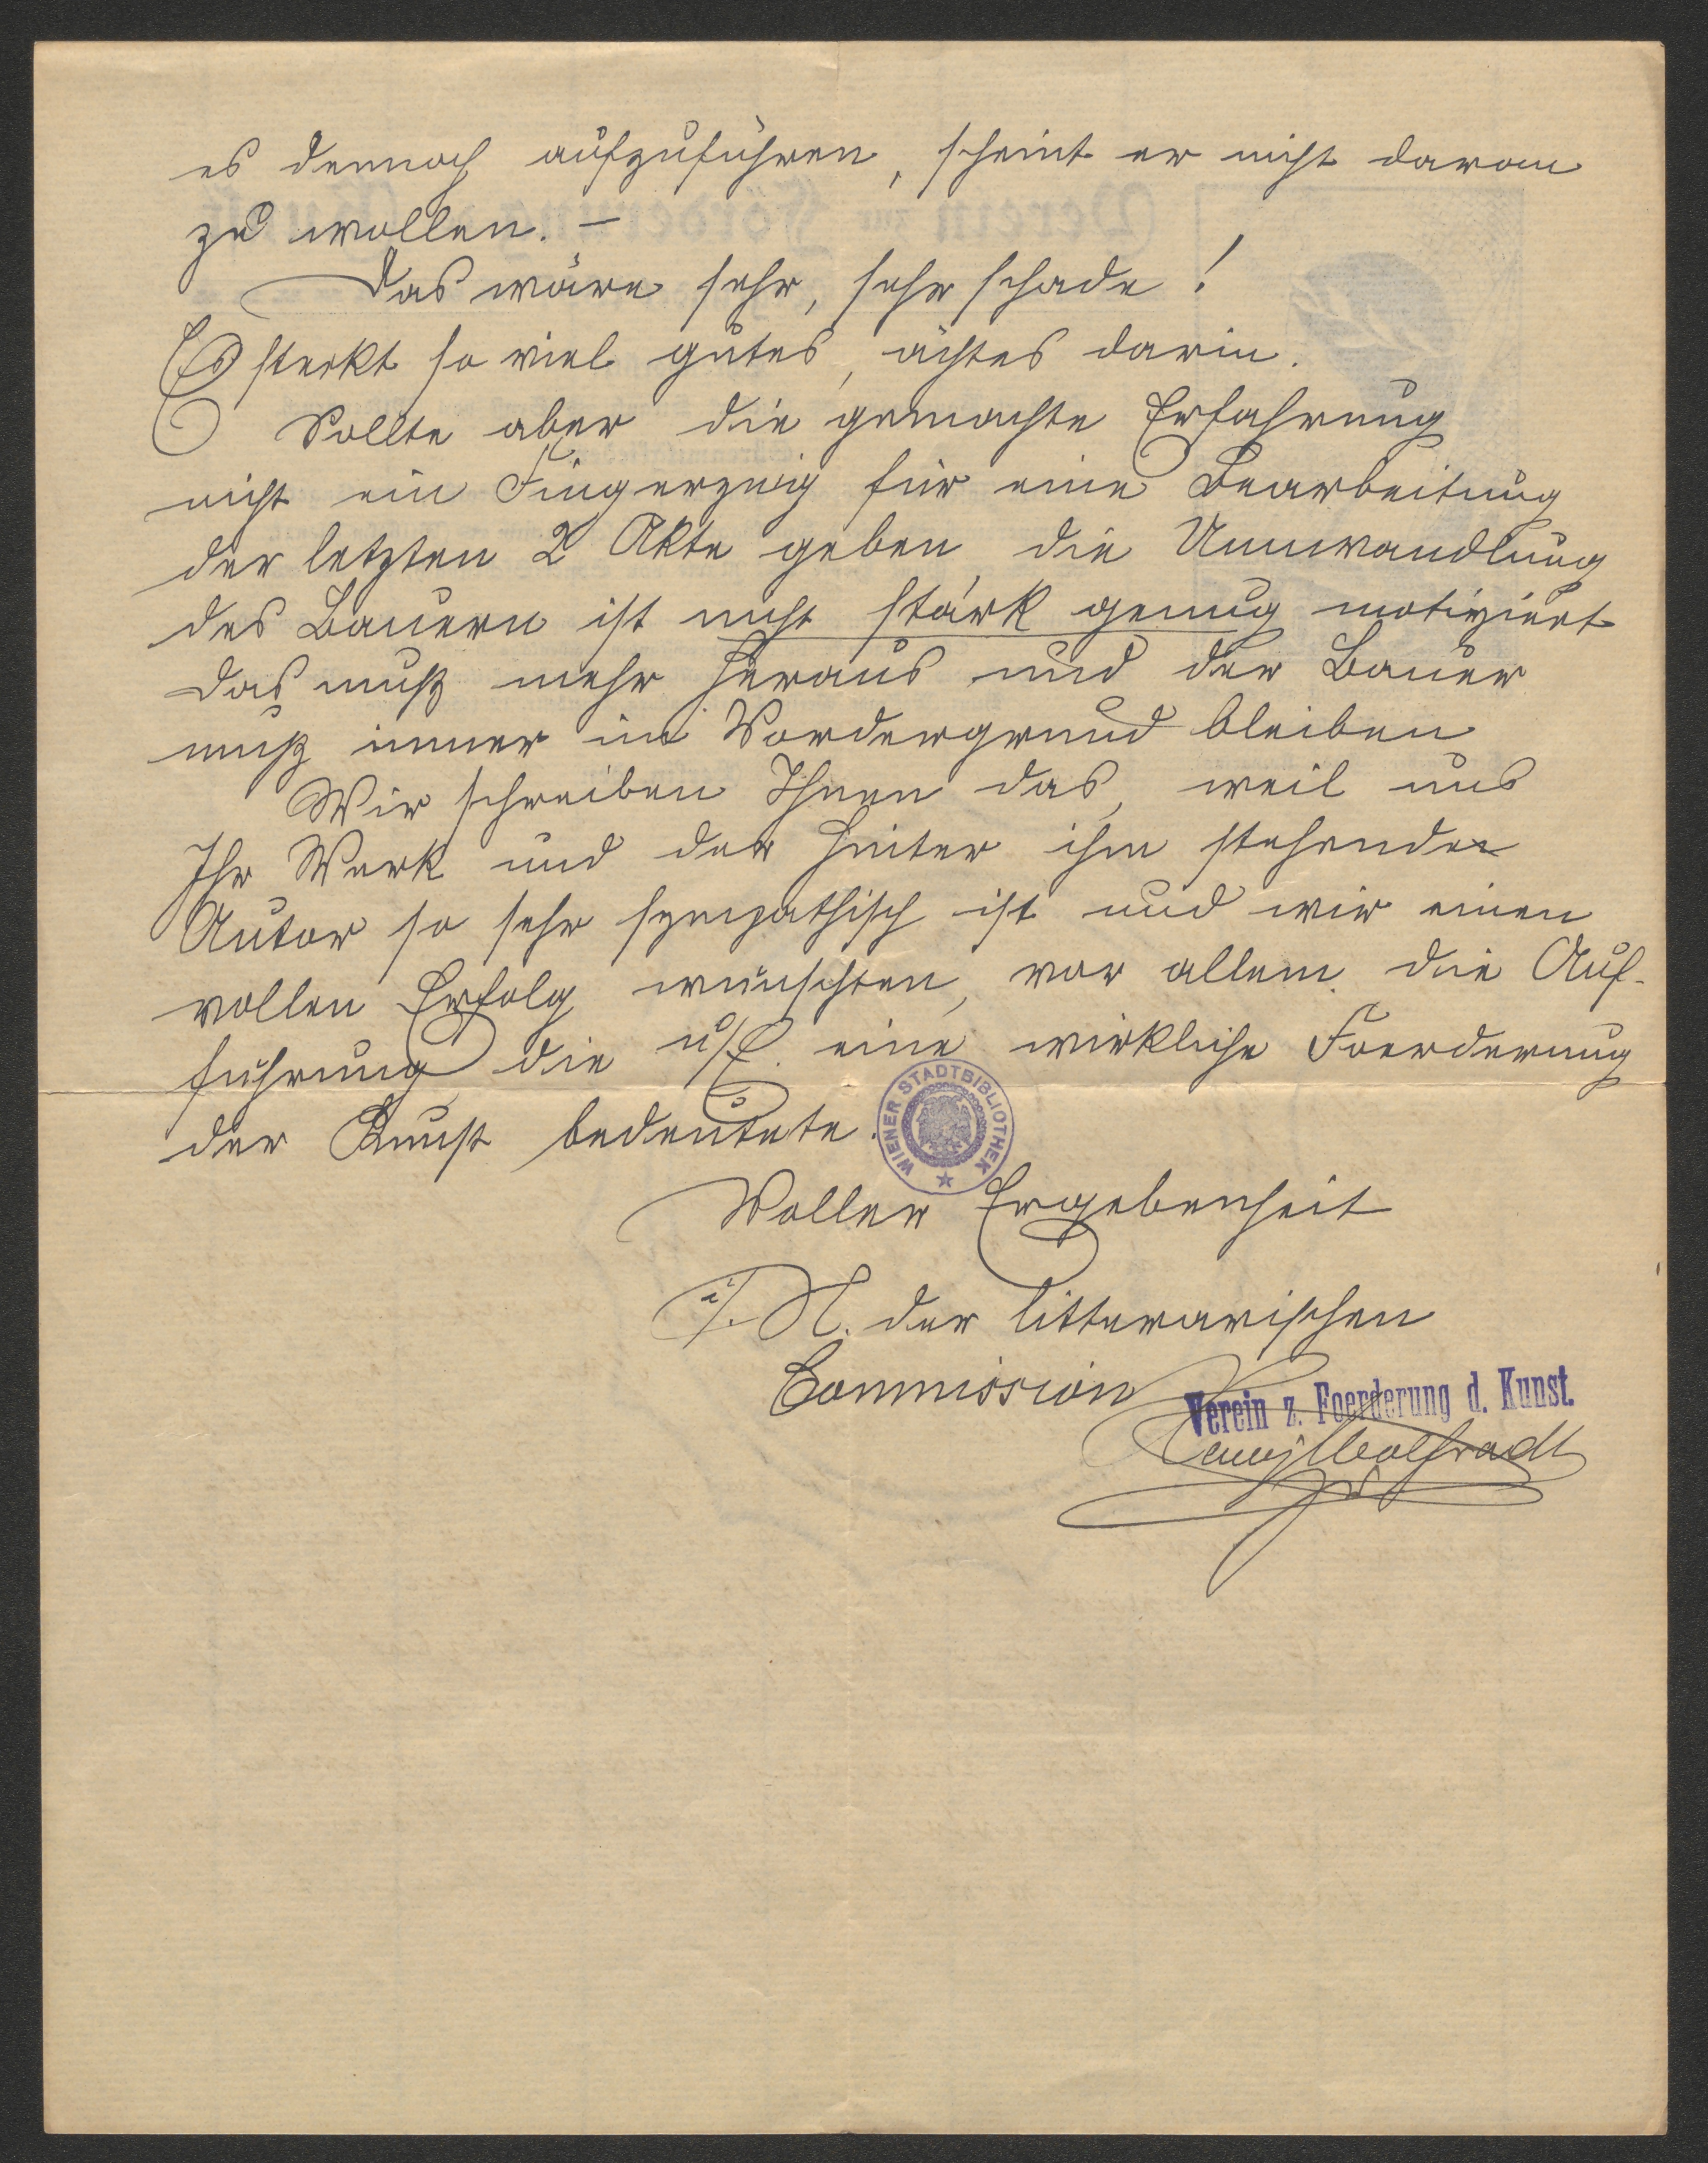 es dennoch aufzuführen, scheint er nicht daran
zu wollen. –
Das wäre sehr, sehr schade!
Es steckt so viel gutes, ächtes darin.
Sollte aber die gemachte Erfahrung
nicht ein Fingerzeig für eine Bearbeitung
der letzten 2 Akte geben, die Umwandlung
des Bauern ist nicht stark genug motiviert
das muß mehr heraus und der Bauer
muß immer im Vordergrund bleiben
Wir schreiben Ihnen das, weil uns
Ihr Werk und der hinter ihm stehende
Autor so sehr sympathisch ist und wir einen
vollen Erfolg wünschten, vor allem die Auf-
führung die u/E. eine wirkliche Foerderung
der Kunst bedeutete.
WIENER STADTBIBLIOTHEK
Voller Ergebenheit
i/. N. der litterarischen
Commission
Verein z. Foerderung d. Kunst.
Wolfradt